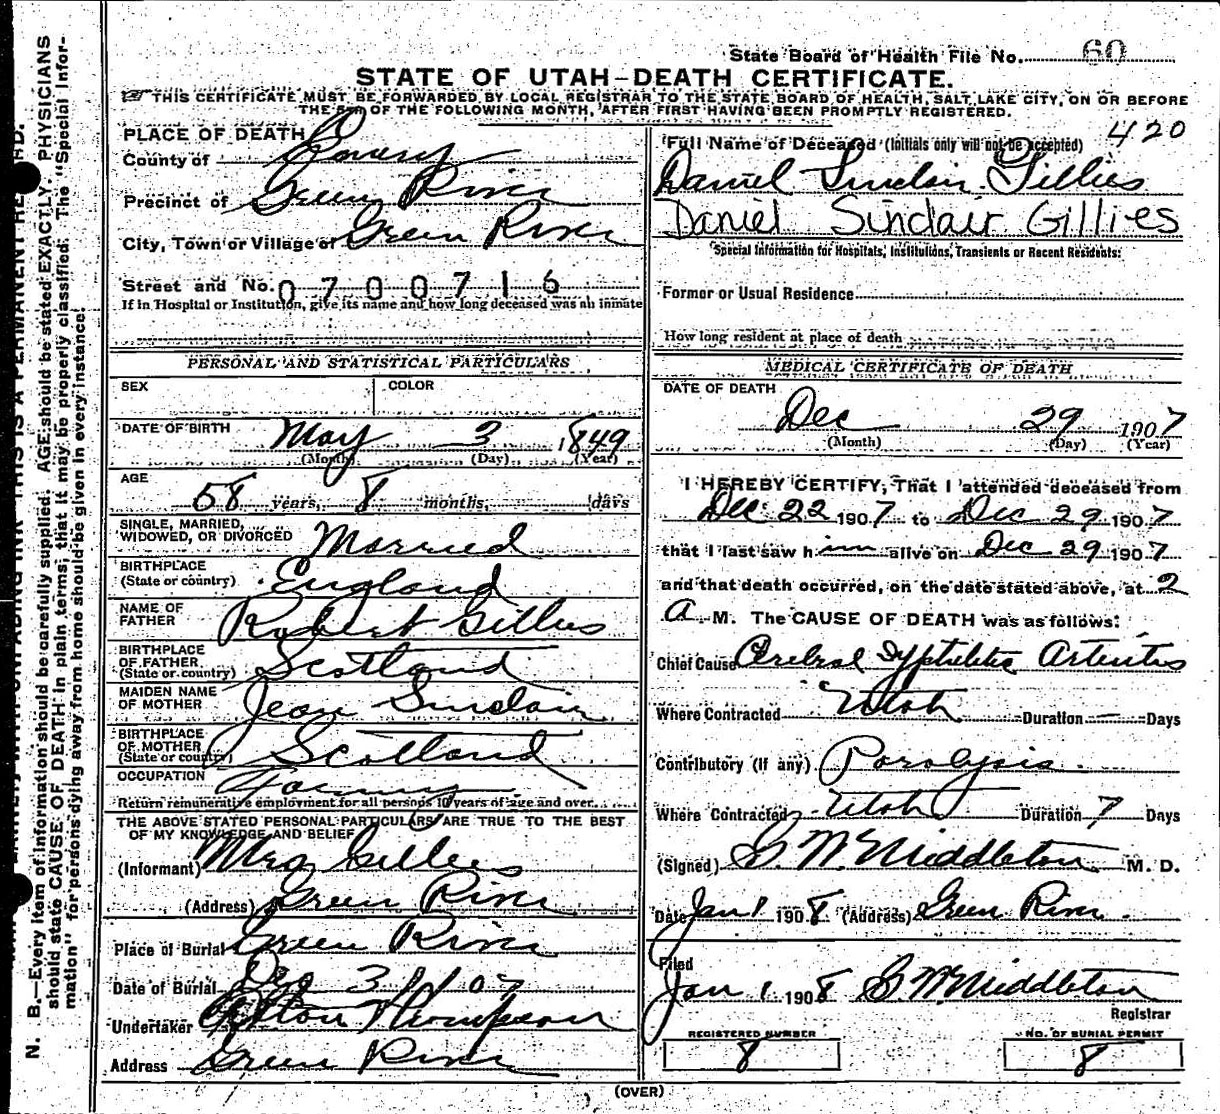 State Board of Health File No. 60
STATE OF UTAH—DEATH CERTIFICATE.
THIS CERTIFICATE MUST BE FORWARDED BY LOCAL REGISTRAR TO THE STATE BOARD OF HEALTH, SALT LAKE CITY, ON OR BEFORE
THE 5TH OF THE FOLLOWING MONTH, AFTER FIRST HAVING BEEN PROMPTLY REGISTERED.
PLACE OF DEATH
County of Emery
Precinct of Green River
City, Town or Village of Green River
Street and No. 0700716
If in Hospital or Institution, give its name and how long deceased was an inmate
420
Full Name of Deceased (Initials only will not be accepted)
Daniel Sinclair Gillies
Daniel Sinclair Gillies
Special Information for Hospitals, Institutions, Transients or Recent Residents:
Former or Usual Residence
How long resident at place of death
PERSONAL AND STATISTICAL PARTICULARS
SEX
COLOR
DATE OF BIRTH May 3 1849
(Month) (Day) (Year)
AGE
58 years, 8 months, days
SINGLE, MARRIED,
WIDOWED, OR DIVORCED Married
BIRTHPLACE
(State or country) England
NAME OF
FATHER Robert Gillies
BIRTHPLACE
OF FATHER
(State or country) Scotland
MAIDEN NAME
OF MOTHER Jean Sinclair
BIRTHPLACE
OF MOTHER
(State or country) Scotland
OCCUPATION
Return remunerative employment for all persons 10 years of age and over
THE ABOVE STATED PERSONAL PARTICULARS ARE TRUE TO THE BEST
OF MY KNOWLEDGE AND BELIEF
(Informant) Mrs Gillies
(Address) Green River
Place of Burial Green River
Date of Burial Dec 31 1907
Undertaker Thompson
Address Green River
MEDICAL CERTIFICATE OF DEATH
DATE OF DEATH
Dec 29 1907
(Month) (Day) (Year)
I HEREBY CERTIFY, That I attended deceased from
Dec 22 1907 to Dec 29 1907
that I last saw him alive on Dec 29 1907
and that death occurred, on the date stated above, at 2
A M. The CAUSE OF DEATH was as follows:
Chief Cause Cerebral Syphilitic Arteritis
Where Contracted Utah Duration — Days
Contributory (if any) Paralysis
Where Contracted Utah Duration 7 Days
(Signed) G. W. Middleton M. D.
Date Jan 1 1908 (Address) Green River
Filed
Jan 1 1908 G. W. Middleton
Registrar
REGISTERED NUMBER
8
NO. OF BURIAL PERMIT
8
(OVER)
N. B.—Every item of information should be carefully supplied. AGE should be stated EXACTLY. PHYSICIANS
should state CAUSE OF DEATH in plain terms, that it may be properly classified. The "Special Infor-
mation" for persons dying away from home should be given in every instance.